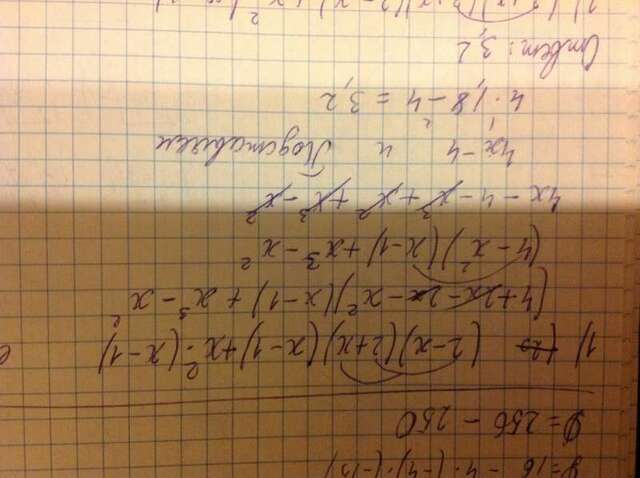 D = 16² - 4 · (-4) · (-15)
D = 256 - 250
1) (2-x)(2+x)(x-1)+x²·(x-1)
(4+2x-2x-x²)(x-1)+x³-x²
(4-x²)(x-1)+x³-x²
4x-4-x³+x²+x³-x²
4x-4 и Подставляем
4·1,8-4=3,2
Ответ: 3,2